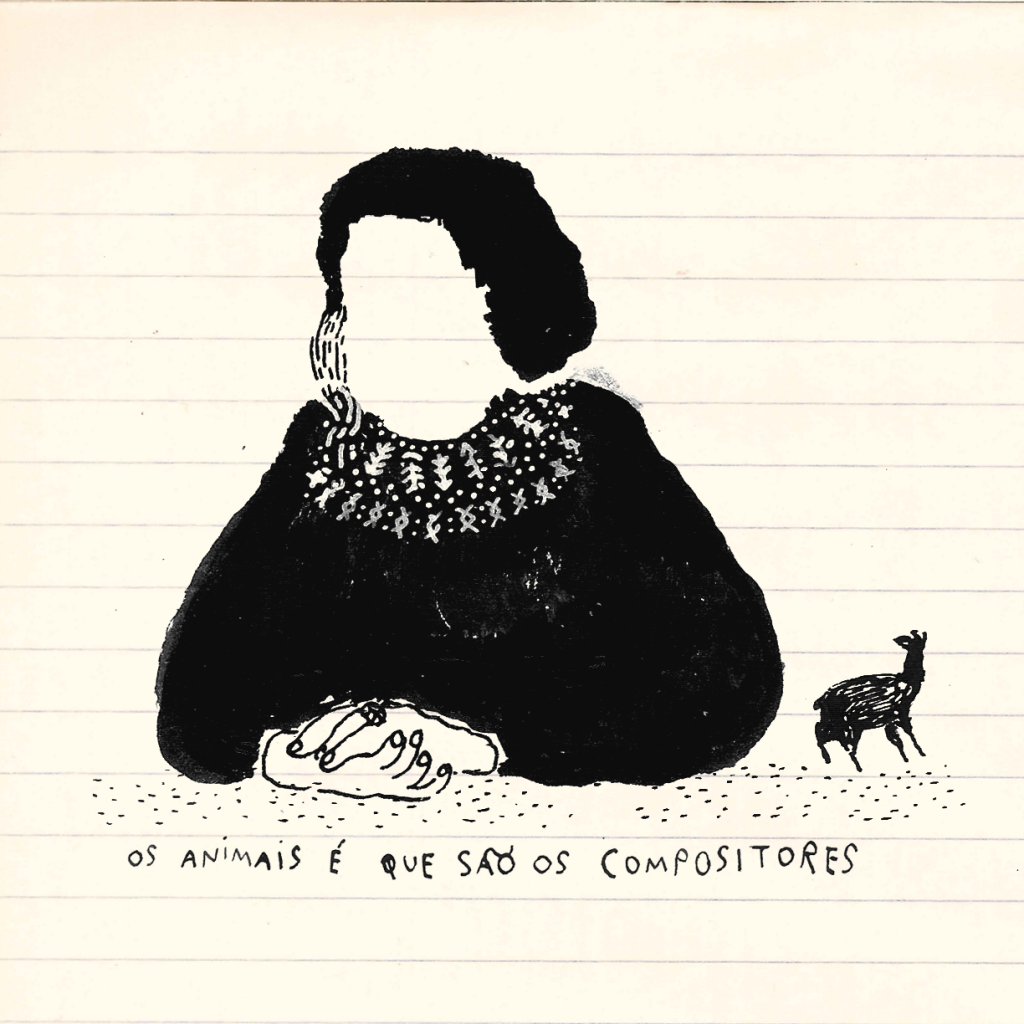 OS ANIMAIS É QUE SÃO OS COMPOSITORES